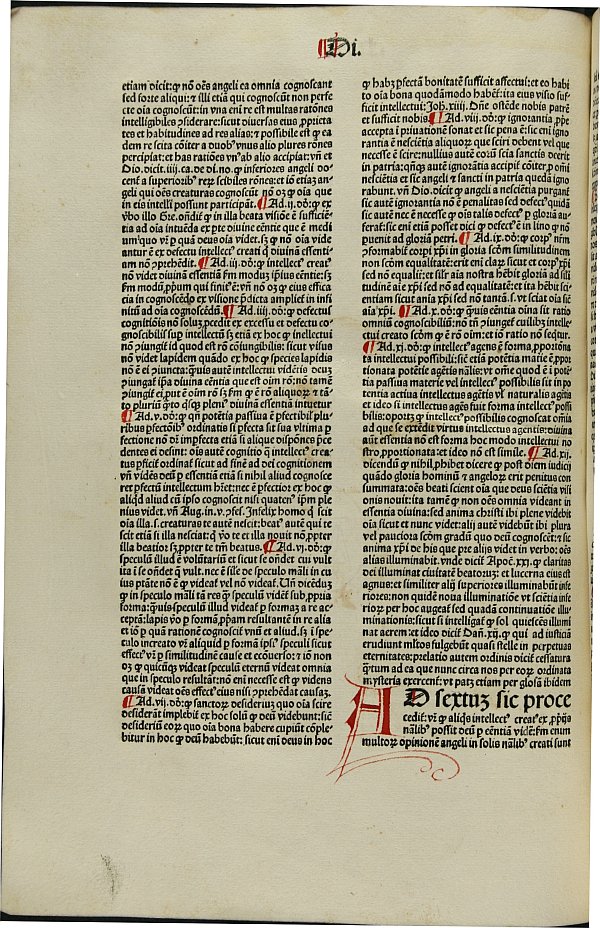 ¶Di.
etiam dicit: ꝙ nō oēs angeli ea omnia cognoscant
sed forte aliqui: ⁊ illi etiā qui cognoscūt non perfe
cte oīa cognoscūt: in vna eni re est multas ratōnes
intelligibiles ꝯsiderare: sicut diuersas eius ꝓprieta
tes et habitudines ad res alias: ⁊ possibile est ꝙ ea
dem re scita cōiter a duobꝰ vnus alio plures rōnes
percipiat: et has ratiōes vnꝰ ab alio accipiat: vn̄ et
Dio. dicit. iiij. ca. de di. no. ꝙ inferiores angeli do-
cent̄ a superioribꝰ reꝝ scibiles rōnes: et iō etiaꝫ an-
geli qui oēs creaturas cognoscūt nō oꝫ ꝙ oīa que
in eis intelli possunt participāt. ¶Ad. ij. dō: ꝙ ex
ꝟbo illo Gre. ondit̄ ꝙ in illa beata visiōe ē sufficiē-
tia ad oīa intuēda ex pte diuine eēntie que ē medi
um quo vꝫ p quā deus oīa videt. sꝫ ꝙ nō oīa vide
antur ē ex defectu intellectꝰ creati ꝗ diuinā essenti-
am nō ꝯprehēdit. ¶Ad. iij. dō: ꝙ intellectꝰ creatꝰ
non videt diuinā essentiā ẜm moduꝫ ipius eēntie: sꝫ
ẜm modū ꝓpum qui finitꝰ ē: vn̄ nō oꝫ ꝙ eius effica
cia in cognoscēdo ex visione p̄dicta amplief in infi
nitū ad oīa cognoscēdū. ¶Ad. iiij. dō: ꝙ defectus
cognitiōis nō soluꝫ ꝓcedit ex excessu et defectu co-
gnoscibilis sup intellectū sꝫ etiā ex hoc ꝙ intellectui
nō ꝯiungit̄ id quod est rō cognoscibilis: sicut visus
non videt lapidem quādo ex hoc ꝙ species lapidis
nō ē ei ꝯiuncta: quis autē intellectui vidētis deuꝫ
ꝯiungat̄ ipsa diuina eēntia que est oim rō: nō tamē
ꝯiungit̄ ei put ē oim rō sꝫ ẜm ꝙ ē rō aliquoꝝ ⁊ tā-
to pluriū quo quisꝗ pleniꝰ diuinā essentiā intuetur
¶Ad. v. dō: ꝙ qn̄ potētia passiua ē pfectibil pluribus pfectōibꝰ ordinatis
perfectione nō dr̄ imperfecta etiā si alique dispōnes p̄ce
dentes ei desint: ois autē cognitio ꝗ intellectꝰ crea
tus pficit̄ ordinat̄ sicut ad finē ad dei cognitionem
vn̄ vidēs deū p essentiā etiā si nihil aliud cognosce
ret pfectū intellectum hēt: nec ē pfectior ex hoc ꝙ
aliqd aliud cū ipo cognoscit nisi quaten̄ ipm ple
nius videt. vn̄ Aug. in. v. ꝯfes. Infelix homo ꝗ scit
oīa illa. s. creaturas te autē nescit: beatꝰ autē qui te
scit etiā si illa nesciat: ꝗ vo te et illa nouit nō ꝓpter
illa beatior sꝫ ꝓpter te tm̄ beatus. ¶Ad. vi. dō: ꝙ
speculū illud ē volūtariū et sicut se ondet cui vult
ita ē se ondet ꝗ vult. nec ē sile de speculo māli in cu
ius ptāte nō ē ꝙ videat̄ vel nō videat̄. Un̄ dicēduꝫ
ꝙ in speculo māli tā res ꝗ speculū videt̄ sub ꝓpria
forma: quis speculū illud videat̄ p formaꝫ a re ac
ceptā: lapis vo p formā ꝓpam resultantē in re alia
et iō p quā rationē cognoscit̄ vnū et aliud. sꝫ ī spe
culo increato vꝫ aliquid p formā ipsiꝰ speculi sicut
effectꝰ vꝫ p similitudinē cause et ecōuerso: ⁊ iō non
oꝫ ꝙ quicūqꝫ videat speculū eternū videat omnia
que in speculo resultāt: nō eni necesse est ꝙ videns
causā videat oēs effectꝰ eius nisi ꝯprehēdat causaꝫ.
¶Ad. vij. dō: ꝙ sanctoꝝ desideriuꝫ quo oīa scire
desiderāt implebit̄ ex hoc solū ꝙ deū videbunt: sicut
desideriū eoꝝ quo oīa bona habere cupiūt cōple-
bitur in hoc ꝙ deū habebūt: sicut eni deus in hoc
ꝙ habꝫ pfectā bonitatē sufficit affectui: et eo habi
to oīa bona quodāmodo habēt̄: ita eius visio suf-
ficit intellectui: Joh. xiiij. Dn̄e ostēde nobis patrē
et sufficit nobis. ¶Ad. viij. dō: ꝙ ignorantia ꝓpe
accepta ī priuationē sonat et sic pena ē: sic eni igno
rantia ē nesciētia aliquoꝝ que sciri debent vel que
necesse ē scire: nullius autē eoꝝ scia sanctis deerit
in patria: qnqꝫ autē ignorātia accipit̄ cōiter p omni
nesciētia et sic angeli ⁊ sancti in patria queda igno
rabunt. vn̄ Dio. dicit ꝙ angeli a nesciētia purgant̄
sic autē ignorantia nō ē penalitas sed defectꝰ quidā
sic autē nec ē necesse ꝙ ois talis defectꝰ p gloriā au-
ferat̄: sic eni etiā posset dici ꝙ defectꝰ ē in lino ꝙ nō
puenit ad gloriā petri. ¶Ad. ix. dō: ꝙ corpꝰ nr̄m
ꝯformabit̄ corpi xp̄i in gloria scdm similitudinem
non scdm equalitatē: erit eni clarꝫ sicut et corpꝰ xp̄i
sed nō equalit̄: et silr̄ aīa nostra hēbit gloriā ad sili
tudinē aie xp̄i sed nō ad equalitatē: et ita hēbit sci-
entiam sicut anīa xp̄i. sed nō tantā. s. vt sciat oīa siē
aīa xp̄i. ¶Ad. x. dō: ꝙ quis eēntia dina sit ratio
omniū cognoscibiliū: nō tn̄ ꝯiunget̄ cuilibꝫ intelle-
ctui creato scdm ꝙ ē rō oīm: et iō ratio nō sequit̄.
¶Ad. xi. dō: ꝙ intellectꝰ agens ē forma ꝓportiōn
ta intellectui possibili: siē etiā potētia matie ē ꝓpor
tionata potētie agētis nālis: vt omne quod ē ī poten
tia passiua materie vel intellectꝰ possibilis sit in po
tentia actiua intellectus agētis vl̓ naturalis agētis
et ideo si intellectus agēs fuit forma intellectꝰ possi
bilis: oportꝫ ꝙ intellectꝰ possibilis cognoscat omīa
ad que se extēdit virtus intellectus agentis: diuina
aut̄ essentia nō est forma hoc modo intellectui no
stro ꝓportionata: et ideo nō est simile. ¶Ad. xij.
dicendū ꝙ nihil phibet dicere ꝙ post diem iudicij
quādo gloria hominū ⁊ angeloꝝ erit penitus con
summata: oēs beati scient oīa que deus sciētia visi
onis nouit: ita tamē ꝙ non oēs omnia videant in
essentia diuina: sed anima christi ibi plene videbit
oīa sicut et nunc videt: alij autē videbūt ibi plura
vel pauciora scdm gradū quo deū cognoscēt: ⁊ sic
anima xp̄i de his que pre alijs videt in verbo: oēs
alias illuminabit. vnde dicit̄ Apoc̄. xxi. ꝙ claritas
dei illuminat ciuitatē beatoruꝫ: et lucerna eius est
agnus: et similiter alij superiores illuminabūt infe
riores: non quidē noua illuminatiōe vt sciētia infe
rioꝝ per hoc augeat̄ sed quadā continuatiōe illu
minationis: sicut si intelligat̄ ꝙ sol quiescēs illumi
nat aerem: et ideo dicit̄ Dan̄. xij. ꝙ qui ad iusticiā
erudiunt mltos fulgebūt quasi stelle in perpetuas
eternitates: prelatio autem ordinis dicit̄ cessatura
q̄tum ad ea que nunc circa nos per eoꝝ ordinata
mysteria exercent̄: vt patꝫ etiam per glosā ibidem
AD sextuꝫ sic proce
cedit̄: vꝫ ꝙ aliqs intellectꝰ creatꝰ ex ꝓpijs
nālibꝰ possit deū p eēntiā vidē: ẜm enim
multoꝝ opinionē angeli in solis nālibꝰ creati sunt